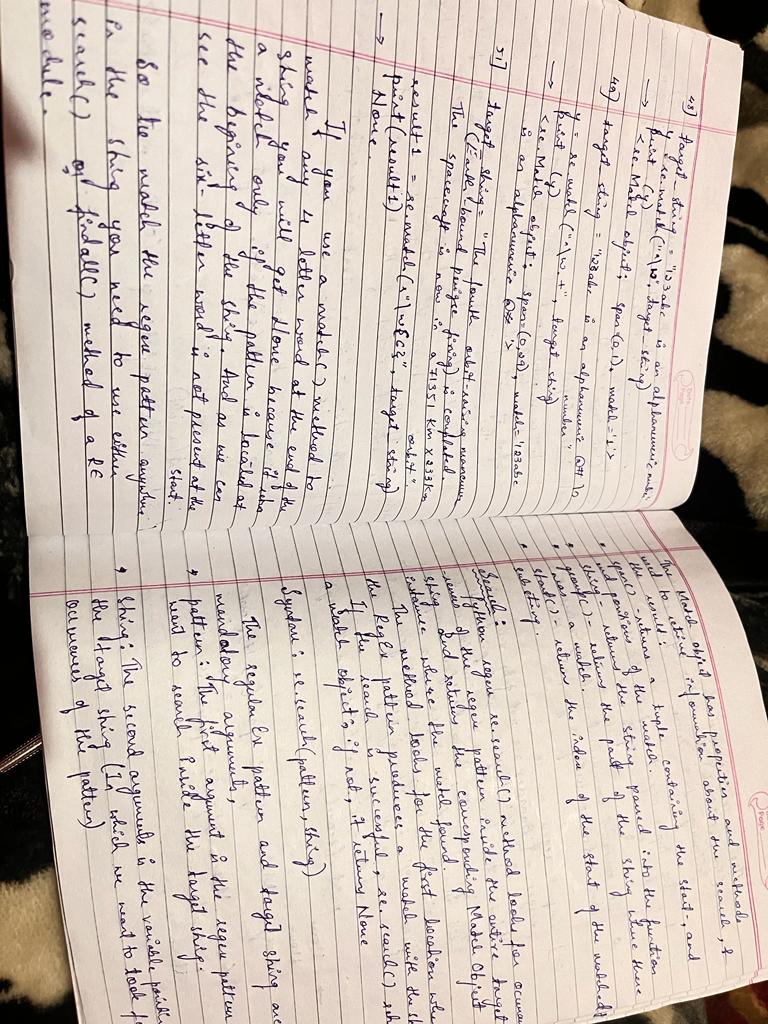 48] target-string = "123abc is an alphanumeric
y = re.match("^\w", target-string)
print (y)
→ <re.Match object; span (0,1), match='1'>
49] target-string = "123abc is an alphanumeric @#1
number"
y = re.match("^\w.+", target string)
print (y)
→ <re.Match object; span=(0,29), match='123abc
is an alphanumeric
51] target string = "The fourth orbit-raising maneuver
(Earth-bound perigee firing) is completed.
The spacecraft is now in a 71351 km x 233 km
orbit".
result1 = re.match(r"\w{6}", target-string)
print(result1)
→ None.
If you use a match() method to
match any 4 letter word at the end of the
string you will get None because it
a match only if the pattern is located at
the beginning of the string. And as we can
see the six-letter word is not present at the
start.
So to match the regex pattern anywhere
in the string you need to use either
search() or findall() method of a RE
module.
Page
Match object has properties and methods
to retrive information about the search, &
the result:
span() - returns a tuple containing the start-, and
end positions of the match.
string - returns the string passed into the function
group() - returns the part of the string where there
was a match.
• start() - returns the index of the start of the matched
substring.
Search:
Python regex re.search() method looks for
of the regex pattern inside the entire target
string and returns the corresponding Match Object
instance where the match found.
The method looks for the first location
the RegEx pattern produces a match with the
If the search is successful, re.search()
a match object; if not, it return None
Syntax: re.search(pattern, string)
The regular Ex pattern and target string are
mandatory arguments,
→ pattern: The first argument is the regex pattern
want to search inside the target string.
→ String: The second arguments is the variable
the target string (In which we want to look
occurences of the pattern)